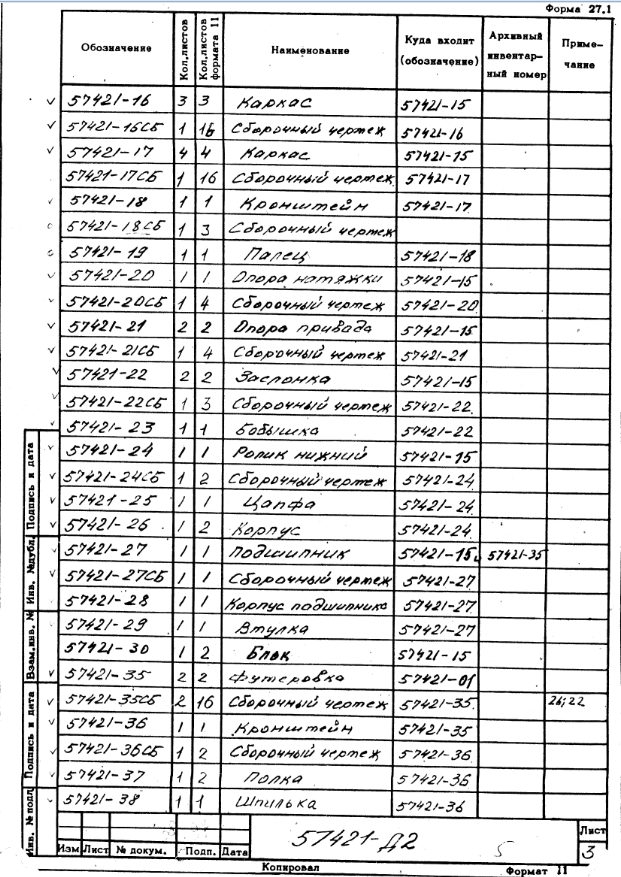 Форма 27.1
Обозначение Кол.листов Кол.листов формата 11 Наименование Куда входит (обозначение) Архивный инвентар- ный номер Приме- чание
57421-16 3 3 Каркас 57421-15
57421-16СБ 1 16 Сборочный чертеж 57421-16
57421-17 4 4 Каркас 57421-15
57421-17СБ 1 16 Сборочный чертеж 57421-17
57421-18 1 1 Кронштейн 57421-17
57421-18СБ 1 3 Сборочный чертеж
57421-19 1 1 Палец 57421-18
57421-20 1 1 Опора натяжки 57421-15
57421-20СБ 1 4 Сборочный чертеж 57421-20
57421-21 2 2 Опора привода 57421-15
57421-21СБ 1 4 Сборочный чертеж 57421-21
57421-22 2 2 Заслонка 57421-15
57421-22СБ 1 3 Сборочный чертеж 57421-22
57421-23 1 1 Бобышка 57421-22
57421-24 1 1 Ролик нижний 57421-15
57421-24СБ 1 2 Сборочный чертеж 57421-24
57421-25 1 1 Цапфа 57421-24
57421-26 1 2 Корпус 57421-24
57421-27 1 1 Подшипник 57421-15, 57421-35
57421-27СБ 1 1 Сборочный чертеж 57421-27
57421-28 1 1 Корпус подшипника 57421-27
57421-29 1 1 Втулка 57421-27
57421-30 1 2 Блок 57421-15
57421-35 2 2 Футеровка 57421-01
57421-35СБ 2 16 Сборочный чертеж 57421-35 26; 22
57421-36 1 1 Кронштейн 57421-35
57421-36СБ 1 2 Сборочный чертеж 57421-36
57421-37 1 2 Полка 57421-36
57421-38 1 1 Шпилька 57421-36
Инв. № подл. Подпись и дата Взам.инв. № Инв. № дубл. Подпись и дата
57421-Д2 5
Лист
3
Изм Лист № докум. Подп. Дата
Копировал Формат 11